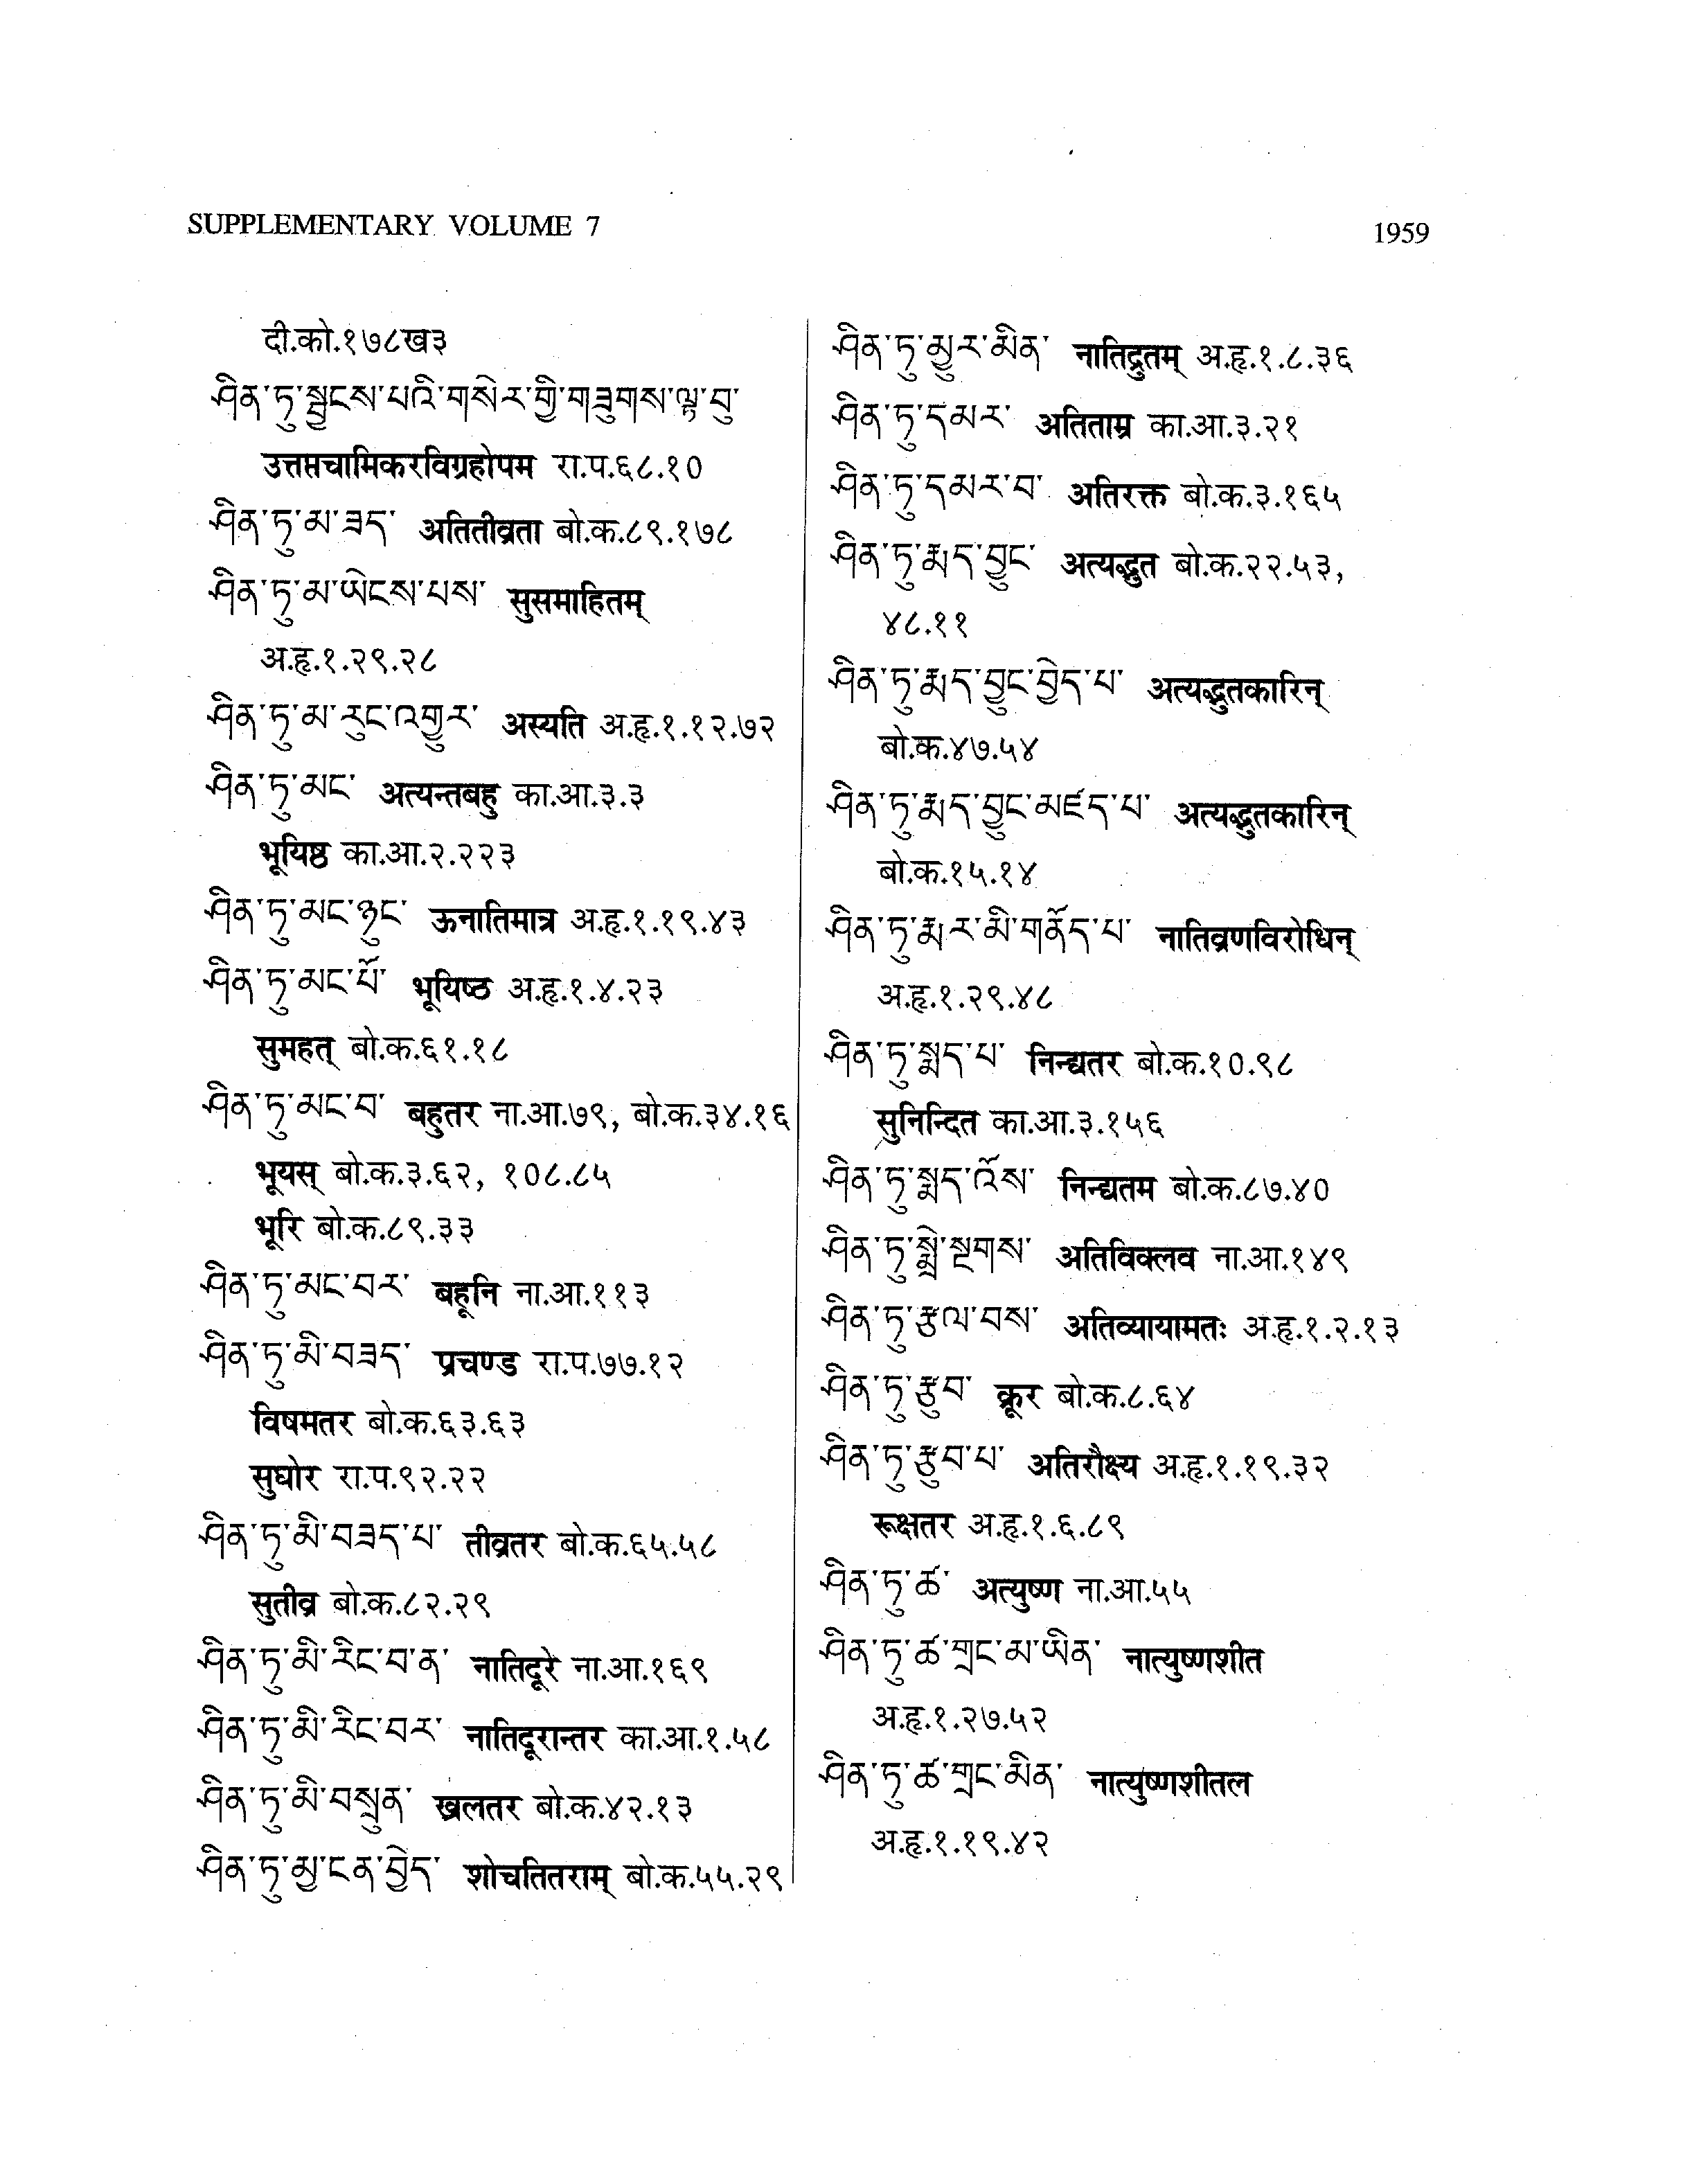 SUPPLEMENTARY VOLUME 7
1959
दी.को.१७८ख३
ཤིན་ཏུ་སྦྱངས་པའི་གསེར་གྱི་གཟུགས་ལྟ་བུ་
उत्तप्तचामिकरविग्रहोपम रा.प.६८.१०
ཤིན་ཏུ་མ་ཟད་ अतितीव्रता बो.क.८९.१७८
ཤིན་ཏུ་མ་ཡེངས་པས་ सुसमाहितम्
अ.हृ.१.२९.२८
ཤིན་ཏུ་མ་རུང་འགྱུར་ अस्यति अ.हृ.१.१२.७२
ཤིན་ཏུ་མང་ अत्यन्तबहु का.आ.३.३
भूयिष्ठ का.आ.२.२२३
ཤིན་ཏུ་མང་ཉུང་ ऊनातिमात्र अ.हृ.१.१९.४३
ཤིན་ཏུ་མང་པོ་ भूयिष्ठ अ.हृ.१.४.२३
सुमहत् बो.क.६१.१८
ཤིན་ཏུ་མང་བ་ बहुतर ना.आ.७९, बो.क.३४.१६
भूयस् बो.क.३.६२, १०८.८५
भूरि बो.क.८९.३३
ཤིན་ཏུ་མང་བར་ बहूनि ना.आ.११३
ཤིན་ཏུ་མི་བཟད་ प्रचण्ड रा.प.७७.१२
विषमतर बो.क.६३.६३
सुघोर रा.प.९२.२२
ཤིན་ཏུ་མི་བཟད་པ་ तीव्रतर बो.क.६५.५८
सुतीव्र बो.क.८२.२९
ཤིན་ཏུ་མི་རིང་བ་ན་ नातिदूरे ना.आ.१६९
ཤིན་ཏུ་མི་རིང་བར་ नातिदूरान्तर का.आ.१.५८
ཤིན་ཏུ་མི་བསྲུན་ खलतर बो.क.४२.१३
ཤིན་ཏུ་མྱ་ངན་བྱེད་ शोचतितराम् बो.क.५५.२९
ཤིན་ཏུ་མྱུར་མིན་ नातिद्रुतम् अ.हृ.१.८.३६
ཤིན་ཏུ་དམར་ अतिताम्र का.आ.३.२१
ཤིན་ཏུ་དམར་བ་ अतिरक्त बो.क.३.१६५
ཤིན་ཏུ་རྨད་བྱུང་ अत्यद्भुत बो.क.२२.५३,
४८.११
ཤིན་ཏུ་རྨད་བྱུང་བྱེད་པ་ अत्यद्भुतकारिन्
बो.क.४७.५४
ཤིན་ཏུ་རྨད་བྱུང་མཛད་པ་ अत्यद्भुतकारिन्
बो.क.१५.१४
ཤིན་ཏུ་རྨར་མི་གནོད་པ་ नातिव्रणविरोधिन्
अ.हृ.१.२९.४८
ཤིན་ཏུ་སྨད་པ་ निन्द्यतर बो.क.१०.९८
सुनिन्दित का.आ.३.१५६
ཤིན་ཏུ་སྨད་འོས་ निन्द्यतम बो.क.८७.४०
ཤིན་ཏུ་སྨྲེ་སྔགས་ अतिविक्लव ना.आ.१४९
ཤིན་ཏུ་རྩལ་བས་ अतिव्यायामतः अ.हृ.१.२.१३
ཤིན་ཏུ་རྩུབ་ क्रूर बो.क.८.६४
ཤིན་ཏུ་རྩུབ་པ་ अतिरौक्ष्य अ.हृ.१.१९.३२
रूक्षतर अ.हृ.१.६.८९
ཤིན་ཏུ་ཚ་ अत्युष्ण ना.आ.५५
ཤིན་ཏུ་ཚ་གྲང་མ་ཡིན་ नात्युष्णशीत
अ.हृ.१.२७.५२
ཤིན་ཏུ་ཚ་གྲང་མིན་ नात्युष्णशीतल
अ.हृ.१.१९.४२